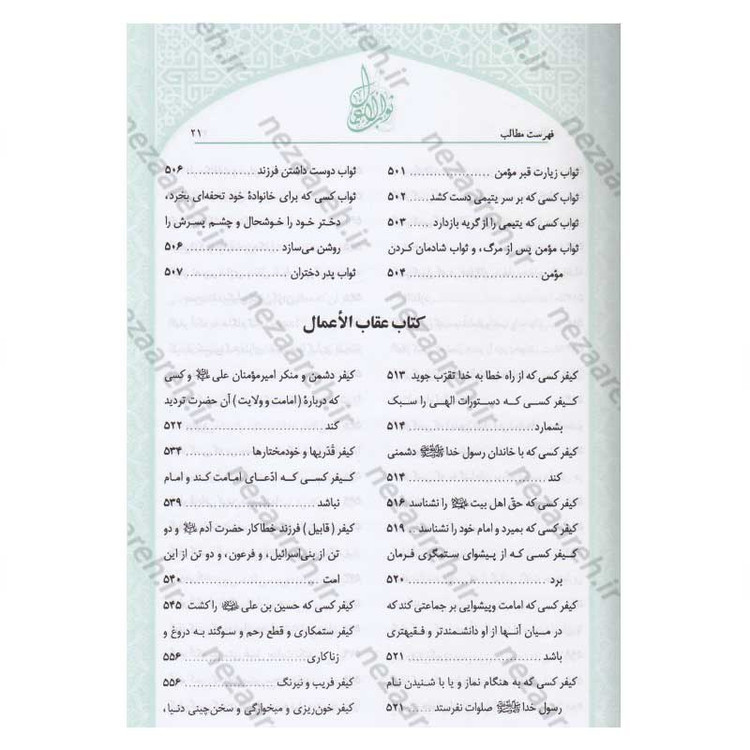 ثواب الاعمال
فهرست مطالب
۲۱
ثواب زیارت قبر مؤمن .................... ۵۰۱
ثواب کسی که بر سر یتیمی دست کشد ..... ۵۰۲
ثواب کسی که یتیمی را از گریه بازدارد ..... ۵۰۳
ثواب مؤمن پس از مرگ، و ثواب شادمان کردن
مؤمن ........................ ۵۰۴
ثواب دوست داشتن فرزند .................. ۵۰۶
ثواب کسی که برای خانوادهٔ خود تحفه‌ای بخرد،
دختر خود را خوشحال و چشم پسرش را
روشن می‌سازد ........................ ۵۰۶
ثواب پدر دختران ........................ ۵۰۷
کتاب عقاب الأعمال
کیفر کسی که از راه خطا به خدا تقرّب جوید ۵۱۳
کیفر کسی که دستورات الهی را سبک
بشمارد ........................ ۵۱۴
کیفر کسی که با خاندان رسول خدا ﷺ دشمنی
کند ........................ ۵۱۴
کیفر کسی که حقّ اهل بیت را نشناسد ۵۱۶
کیفر کسی که بمیرد و امام خود را نشناسد ... ۵۱۹
کیفر کسی که از پیشوای ستمگری فرمان
برد ........................ ۵۲۰
کیفر کسی که امامت و پیشوایی بر جماعتی کند که
در میان آنها از او دانشمندتر و فقیهتری
باشد ........................ ۵۲۱
کیفر کسی که به هنگام نماز و یا با شنیدن نام
رسول خدا ﷺ صلوات نفرستد ...... ۵۲۱
کیفر دشمن و منکر امیرمؤمنان علی و کسی
که دربارهٔ (امامت و ولایت) آن حضرت تردید
کند ........................ ۵۲۲
کیفر قَدَریها و خودمختارها ................ ۵۳۴
کیفر کسی که ادّعای امامت کند و امام
نباشد ........................ ۵۳۹
کیفر (قابیل) فرزند خطاکار حضرت آدم و دو
تن از بنی‌اسرائیل، و فرعون، و دو تن از این
امت ........................ ۵۴۰
کیفر کسی که حسین بن علی را کشت ۵۴۵
کیفر ستمکاری و قطع رحم و سوگند به دروغ و
زناکاری ........................ ۵۵۶
کیفر فریب و نیرنگ ........................ ۵۵۶
کیفر خون‌ریزی و میخوارگی و سخن‌چینی دنیا،
nezaareh.ir